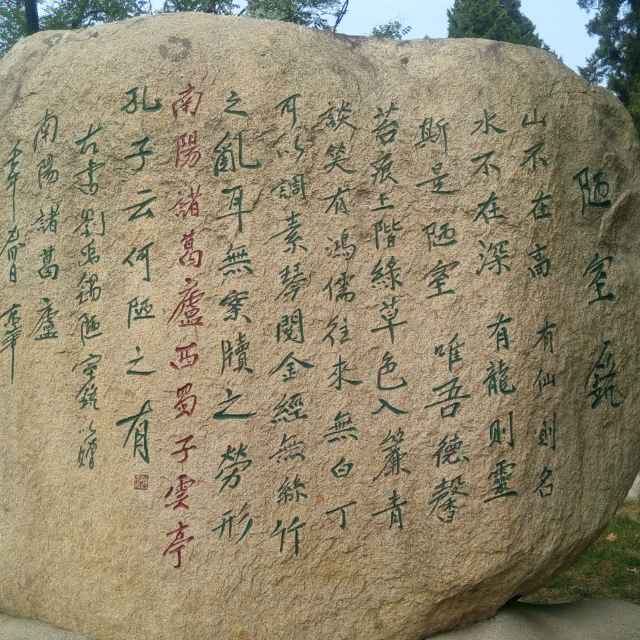 陋室銘
山不在高 有仙則名
水不在深 有龍則靈
斯是陋室 唯吾德馨
苔痕上階綠草色入簾青
談笑有鴻儒往來無白丁
可以調素琴閱金經無絲竹
之亂耳無案牘之勞形
南陽諸葛廬西蜀子雲亭
孔子云何陋之有
劉禹錫陋室銘
南陽諸葛廬